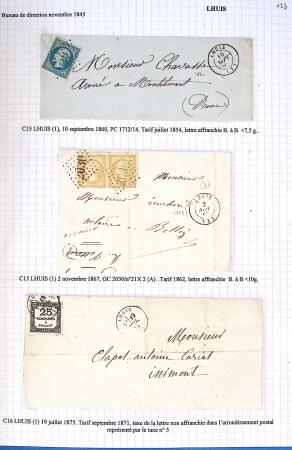 LHUIS
123
Bureau de direction novembre 1845
LHUIS
10
Monsieur Chavasse
Avoué à Montélimart
Drome
C15 LHUIS (1), 10 septembre 1860, PC 1712/14. Tarif juillet 1854, lettre affranchie B. à B. <7,5 g..
Monsieur
Monsieur
LHUIS
2
notaire à
Belley
C15 LHUIS (1) 2 novembre 1867, GC 2030/n°21X 2 (A). .Tarif 1862, lettre affranchie B. à B <10g.
25
LHUIS
19
Monsieur
Clapot-antoine Cariet
inimont
C16 LHUIS (1) 19 juillet 1875. Tarif septembre 1871, taxe de la lettre non affranchie dans l'arrondissement postal
représenté par le taxe n° 5